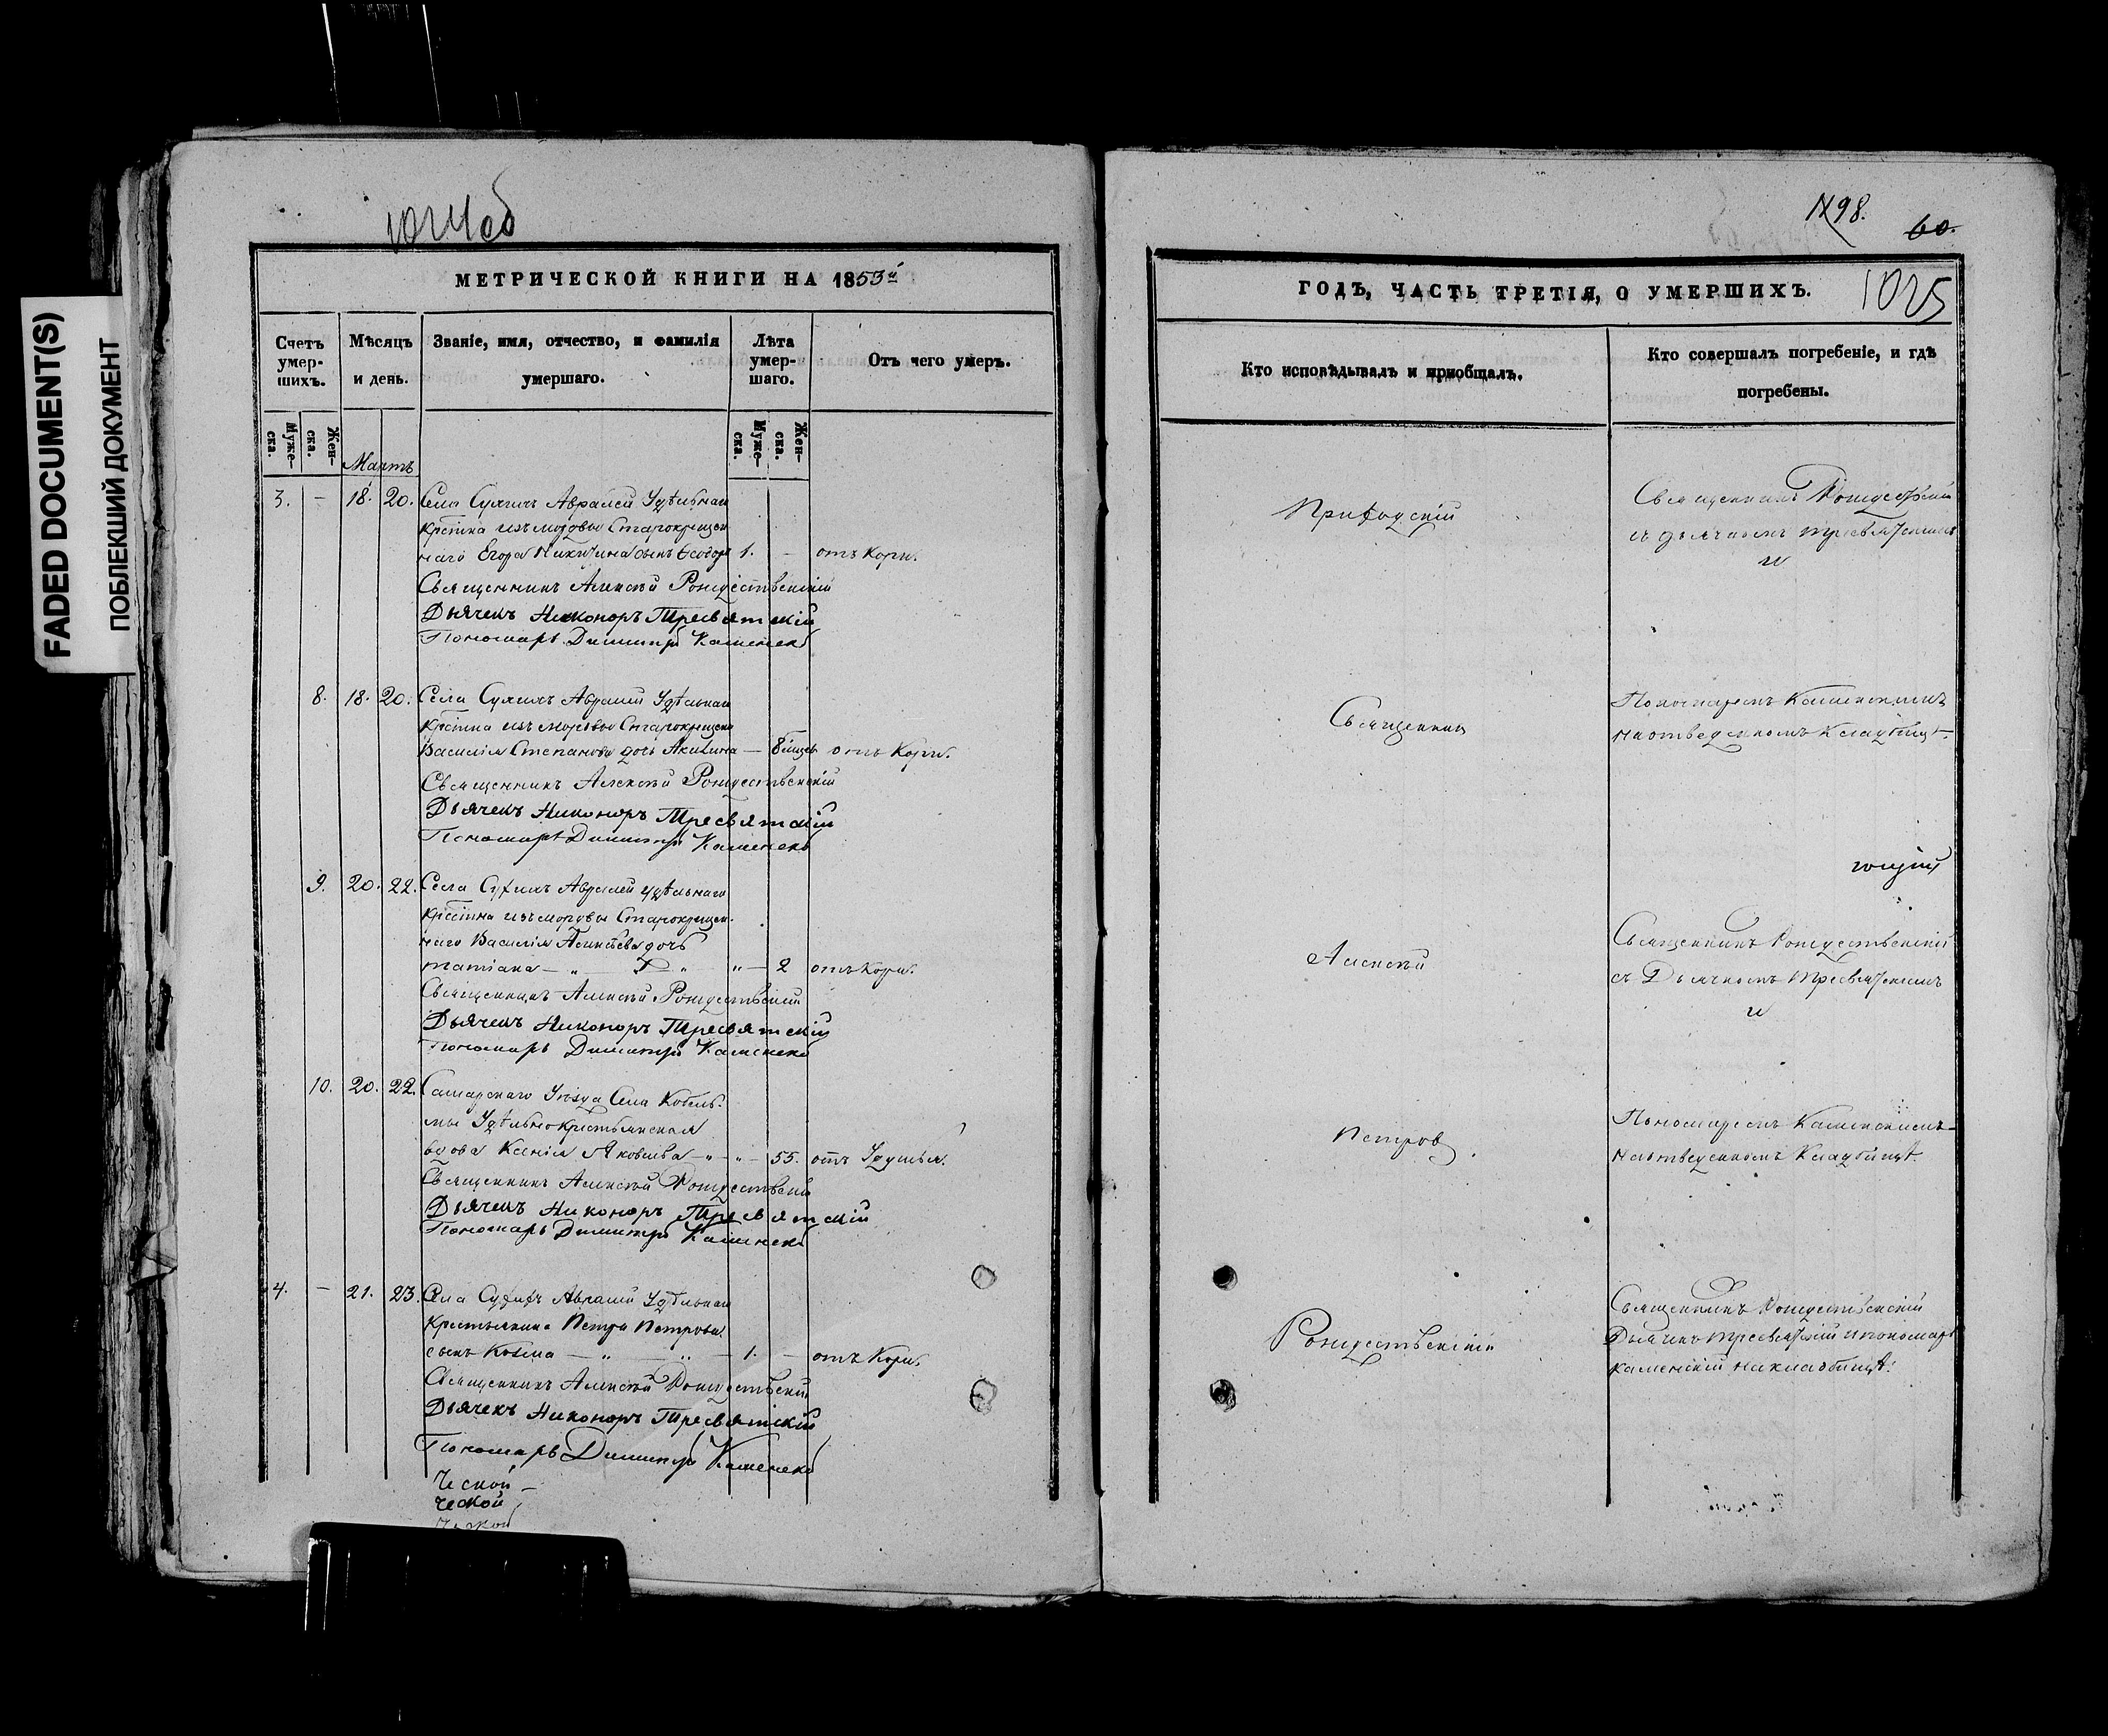 FADED DOCUMENT(S)
ПОБЛЕКШИЙ ДОКУМЕНТ
1024об
МЕТРИЧЕСКОЙ КНИГИ НА 1853й
Счетъ умер-шихъ.
Мѣсяцъ и день.
Званіе, имя, отчество, и фамилія умершаго.
Лѣта умер-шаго.
Отъ чего умеръ.
Муже-ска.
Жен-ска.
Муже-ска.
Жен-ска.
Мартъ
3. – 18. 20. Села Авралей Удѣльнаго
крстіна изъ мордвы Старокрещен
наго Егора Никитина сынъ Ѳеодоръ 1. – отъ Кори.
Священникъ Алексѣй Рождественскій
Дьячекъ Никоноръ Тресвятскій
Пономарь Димитрій Каменскій
8. 18. 20. Села Авралей Удѣльнаго
крстіна изъ мордвы Старокрещен
Василія Степанова дочь Акилина – 8 отъ Кори.
Священникъ Алексѣй Рождественскій
Дьячекъ Никоноръ Тресвятскій
Пономарь Димитрій Каменскій
9. 20. 22. Села Авралей удѣльнаго
крстіина изъ мордвы Старокрещен-
наго Василія дочь
татіана – „ – „ „ – 2 отъ Кори.
Священникъ Алексѣй Рождественскій
Дьячекъ Никоноръ Тресвятскій
Пономарь Димитрій Каменскій
10. 20. 22. Самарскаго Уѣзда Села Кобель-
мы Удѣльнокрестьянская
вдова Ксенія Яковлева – „ – 55. отъ Удушья.
Священникъ Алексѣй Рождественскій
Дьячекъ Никоноръ Тресвятскій
Пономарь Димитрій Каменскій
4. – 21. 23. Села Авралей Удѣльнаго
Крестьянина Петра Петрова
сынъ Козма – „ „ – 1. – отъ Кори.
Священникъ Алексѣй Рождественскій
Дьячекъ Никоноръ Тресвятскій
Пономарь Димитрій Каменскій
ческой –
ческой
ческой
98.
60.
1025
ГОДЪ, ЧАСТЬ ТРЕТІЯ, О УМЕРШИХЪ.
Кто исповѣдывалъ и пріобщалъ.
Кто совершалъ погребеніе, и гдѣ погребены.
Приходскій
Священникъ Рождественскій
съ дьячкомъ тресвятскимъ
и
Священникъ
Пономаремъ Каменскимъ
на отведенномъ кладбищѣ.
Алексѣй
Священникъ Рождественскій
съ Дьячкомъ тресвятскимъ
и
Петровъ
Пономаремъ Каменскимъ
на отведенномъ Кладбищѣ.
Рождественскій
Священникъ Рождественскій
Дьячекъ тресвятскій и пономарь
каменскій на кладбищѣ.